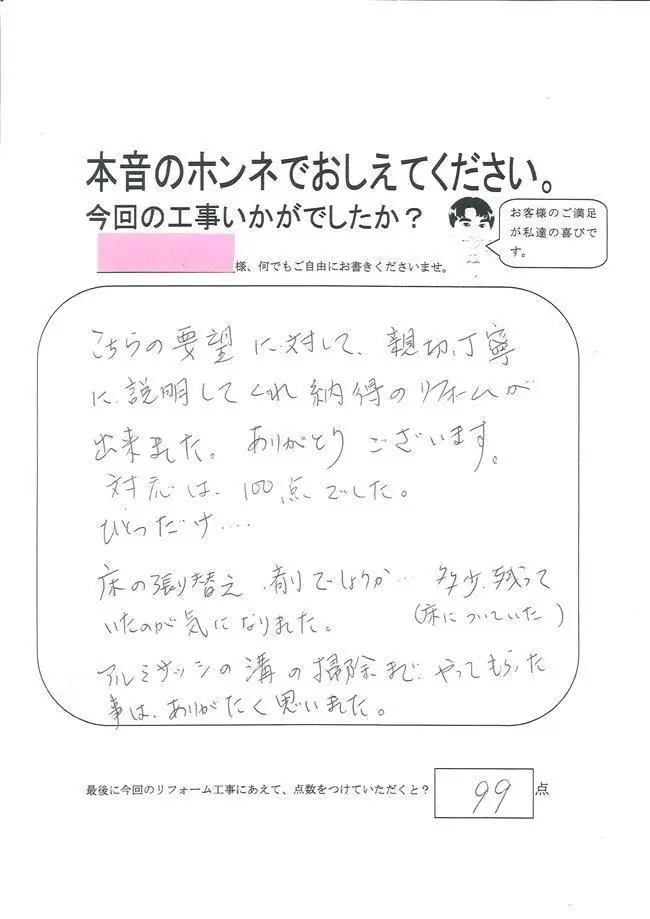 本音のホンネでおしえてください。
今回の工事いかがでしたか？
お客様のご満足
が私達の喜びで
す。
様、何でもご自由にお書きくださいませ。
こちらの要望に対して、親切、丁寧
に説明してくれ納得のリフォームが
出来ました。ありがとうございます。
対応は、100点でした。
ひとつだけ‥‥
床の張り替え、剤でしょうか… 多少、残って
いたのが気になりました。（床についていた）
アルミサッシの溝の掃除まで、やってもらった
事は、ありがたく思いました。
最後に今回のリフォーム工事にあえて、点数をつけていただくと？ 99 点